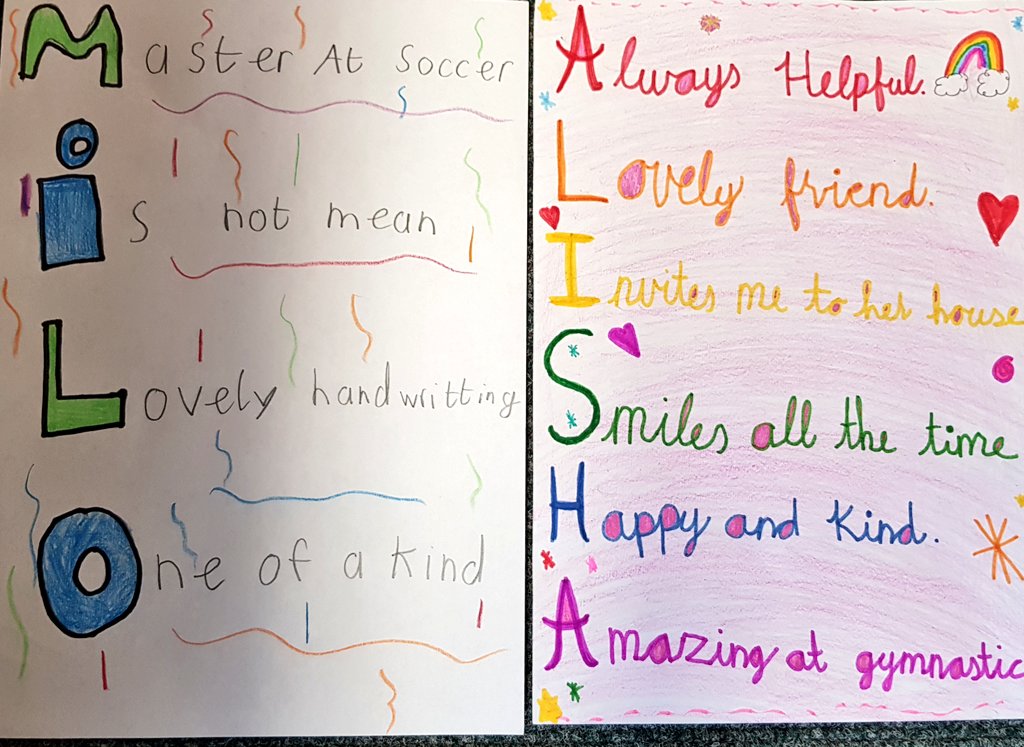 Master At Soccer
is not mean
Lovely handwritting
One of a kind
Always Helpful.
Lovely friend.
Invites me to her house
Smiles all the time
Happy and Kind.
Amazing at gymnastic